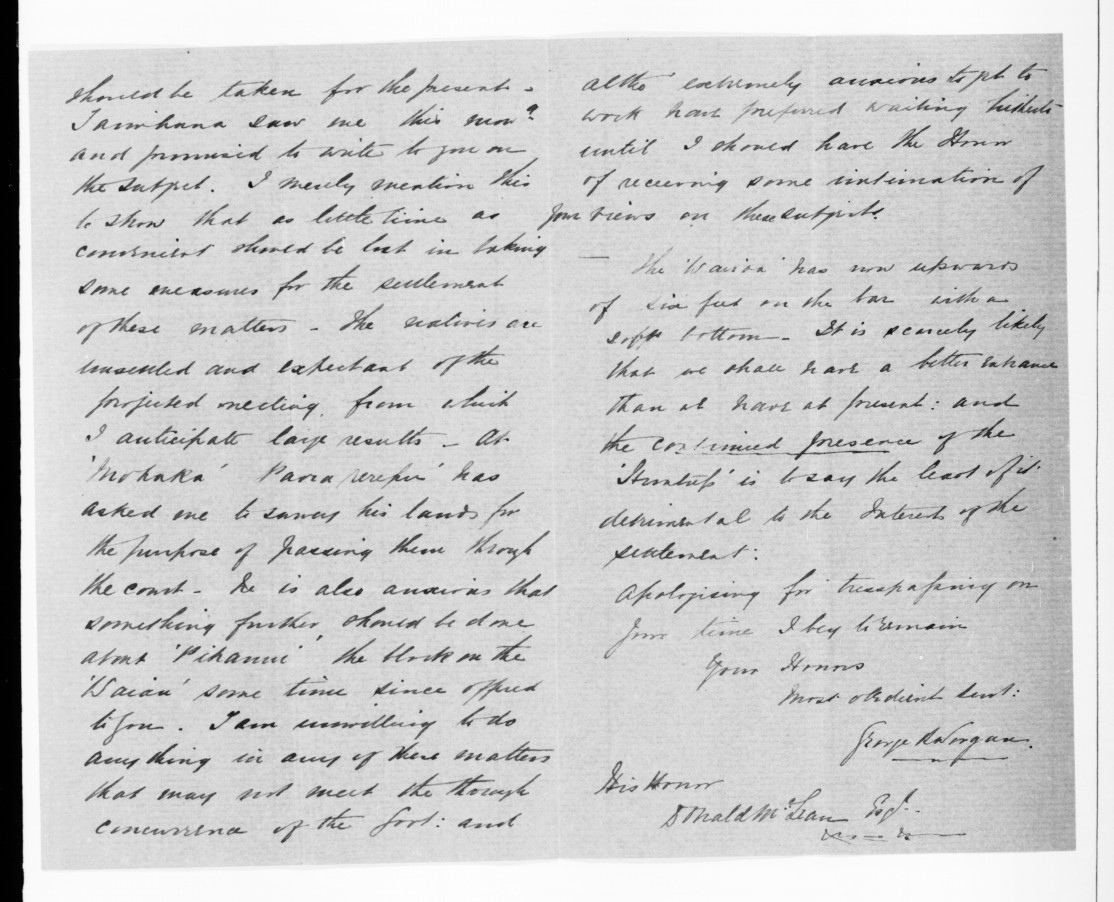 should be taken for the present -
Tamihana saw me this morng
and promised to write to you on
the subject. I merely mention this
to show that as little time as
convenient should be lost in taking
some measures for the settlement
of these matters - The natives are
unsettled and expectant of the
projected meeting, from which
I anticipate large results - At
'Mohaka' has
asked me to survey his lands for
the purpose of passing them through
the court - He is also anxious that
something further should be done
about 'Pihanui' the block on the
'Waiau' some time since offered
to you. I am unwilling to do
anything in any of these matters
that may not meet the thorough
concurrence of the Govt: and
altho' extremely anxious to get to
work have preferred waiting hitherto
until I should have the Honor
of receiving some intimation of
your views on these subjects.
— The 'Wairoa' has now upwards
of six feet on the bar with a
soft bottom - It is scarcely likely
that we shall have a better entrance
than we have at present: and
the continued presence of the
'Sturt' is to say the least of it
detrimental to the Interests of the
settlement:
Apologising for tresspassing on
your time I beg to remain
Your Honors
Most obedient Servt:
George Worgan.
His Honor
Donald McLean Esq.